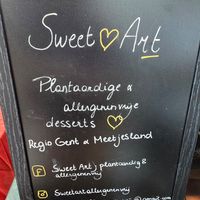 Sweet Art
Plantaardige &
allergeenvrije
desserts
Regio Gent & Meetjesland
Sweet Art; plantaardig &
allergeenvrij
Sweetartallergeenvrij